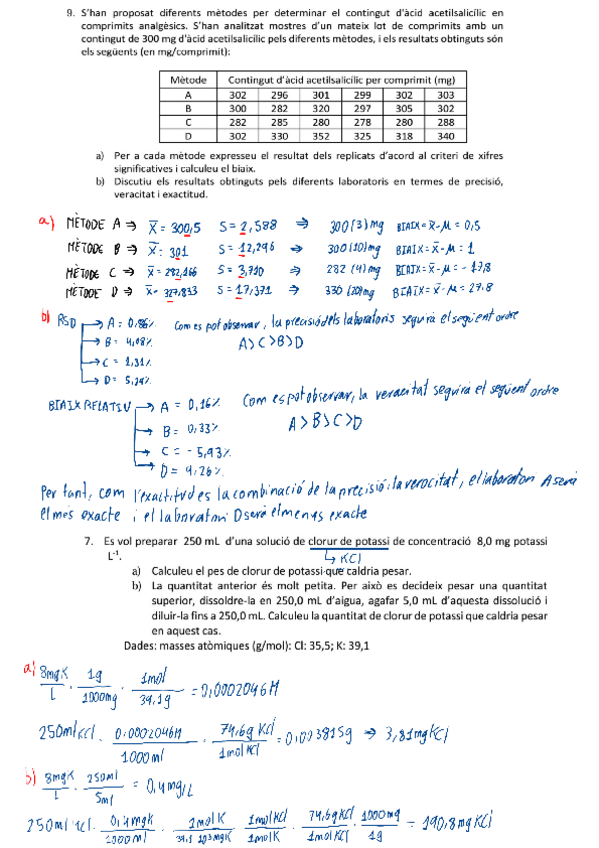 9. S'han proposat diferents mètodes per determinar el contingut d'àcid acetilsalicílic en
comprimits analgèsics. S'han analitzat mostres d'un mateix lot de comprimits amb un
contingut de 300 mg d'àcid acetilsalicílic pels diferents mètodes, i els resultats obtinguts són
els següents (en mg/comprimit):
Mètode Contingut d'àcid acetilsalicílic per comprimit (mg)
A 302 296 301 299 302 303
B 300 282 320 297 305 302
C 282 285 280 278 280 288
D 302 330 352 325 318 340
a) Per a cada mètode expresseu el resultat dels replicats d'acord al criteri de xifres
significatives i calculeu el biaix.
b) Discutiu els resultats obtinguts pels diferents laboratoris en termes de precisió,
veracitat i exactitud.
a) MÈTODE A ⇒ x̄ = 300,5 S = 2,588 ⇒ 300(3)mg BIAIX = x̄-M = 0,5
MÈTODE B ⇒ x̄ = 301 S = 12,296 ⇒ 300(10)mg BIAIX = x̄-M = 1
MÈTODE C ⇒ x̄ = 282,166 S = 3,710 ⇒ 282 (4)mg BIAIX = x̄-M = - 17,8
MÈTODE D ⇒ x̄ = 327,833 S = 17,371 ⇒ 330 (20)mg BIAIX = x̄-M = 27.8
b) RSD → A = 0,86% Com es pot observar, la precisió dels laboratoris seguirà el següent ordre
→ B = 4,08% A>C>B>D
→ C = 1,31%
→ D = 5,29%
BIAIX RELATIU → A = 0,16% Com es pot observar, la veracitat seguirà el següent ordre
→ B = 0,33% A>B>C>D
→ C = -5,93%
→ D = 9,26%
Per tant, com l'exactitud es la combinació de la precisió i la verocitat, el laboratori A serà
el més exacte i el laboratori D serà el menys exacte
7. Es vol preparar 250 mL d'una solució de clorur de potassi de concentració 8,0 mg potassi
L⁻¹. ↳ KCl
a) Calculeu el pes de clorur de potassi que caldria pesar.
b) La quantitat anterior és molt petita. Per això es decideix pesar una quantitat
superior, dissoldre-la en 250,0 mL d'aigua, agafar 5,0 mL d'aquesta dissolució i
diluir-la fins a 250,0 mL. Calculeu la quantitat de clorur de potassi que caldria pesar
en aquest cas.
Dades: masses atòmiques (g/mol): Cl: 35,5; K: 39,1
a) 8mgK/L · 1g/1000mg · 1mol/39,1g = 0,0002046M
250ml KCl · 0,0002046M/1000ml · 74,6g KCl/1mol KCl = 0,003815g ⇒ 3,81mgKCl
b) 8mgK/L · 250ml/5ml = 0,4mg/L
250ml KCl · 0,4mgK/1000ml · 1molK/39,1·10³mgK · 1molKCl/1molK · 74,6gKCl/1molKCl · 1000mg/1g = 190,8mgKCl